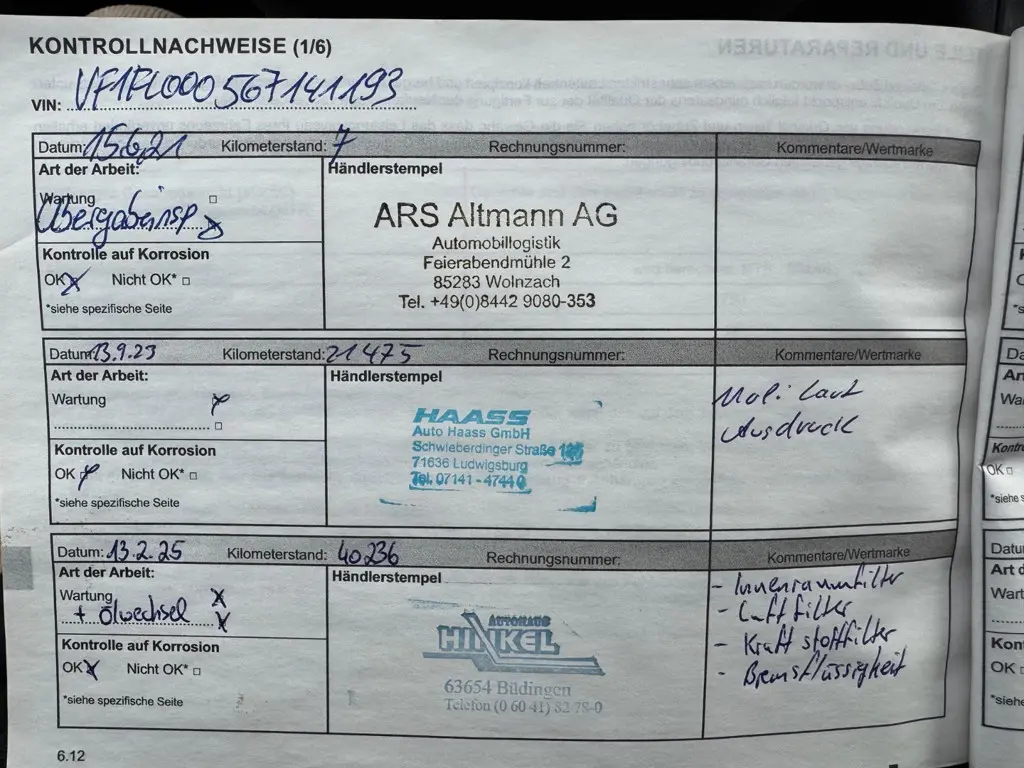 KONTROLLNACHWEISE (1/6)
VIN: VF1FL000567141193
Datum: 15.6.21 Kilometerstand: 7 Rechnungsnummer: Kommentare/Wertmarke
Art der Arbeit: Händlerstempel
Wartung
Übergabeinsp.
ARS Altmann AG
Automobillogistik
Feierabendmühle 2
85283 Wolnzach
Tel. +49(0)8442 9080-353
Kontrolle auf Korrosion
OK Nicht OK*
*siehe spezifische Seite
Datum: 13.9.23 Kilometerstand: 21475 Rechnungsnummer: Kommentare/Wertmarke
Art der Arbeit: Händlerstempel
Wartung
HAASS
Auto Haass GmbH
Schwieberdinger Straße
71636 Ludwigsburg
Tel. 07141 - 47440
laut
Ausdruck
Kontrolle auf Korrosion
OK Nicht OK*
*siehe spezifische Seite
Datum: 13.2.25 Kilometerstand: 40236 Rechnungsnummer: Kommentare/Wertmarke
Art der Arbeit: Händlerstempel
Wartung
+ Ölwechsel
AUTOHAUS
HINKEL
63654 Büdingen
Telefon (0 60 41) 82 78-0
- Innenraumfilter
- Luftfilter
- Kraftstoffilter
- Bremsflüssigkeit
Kontrolle auf Korrosion
OK Nicht OK*
*siehe spezifische Seite
6.12